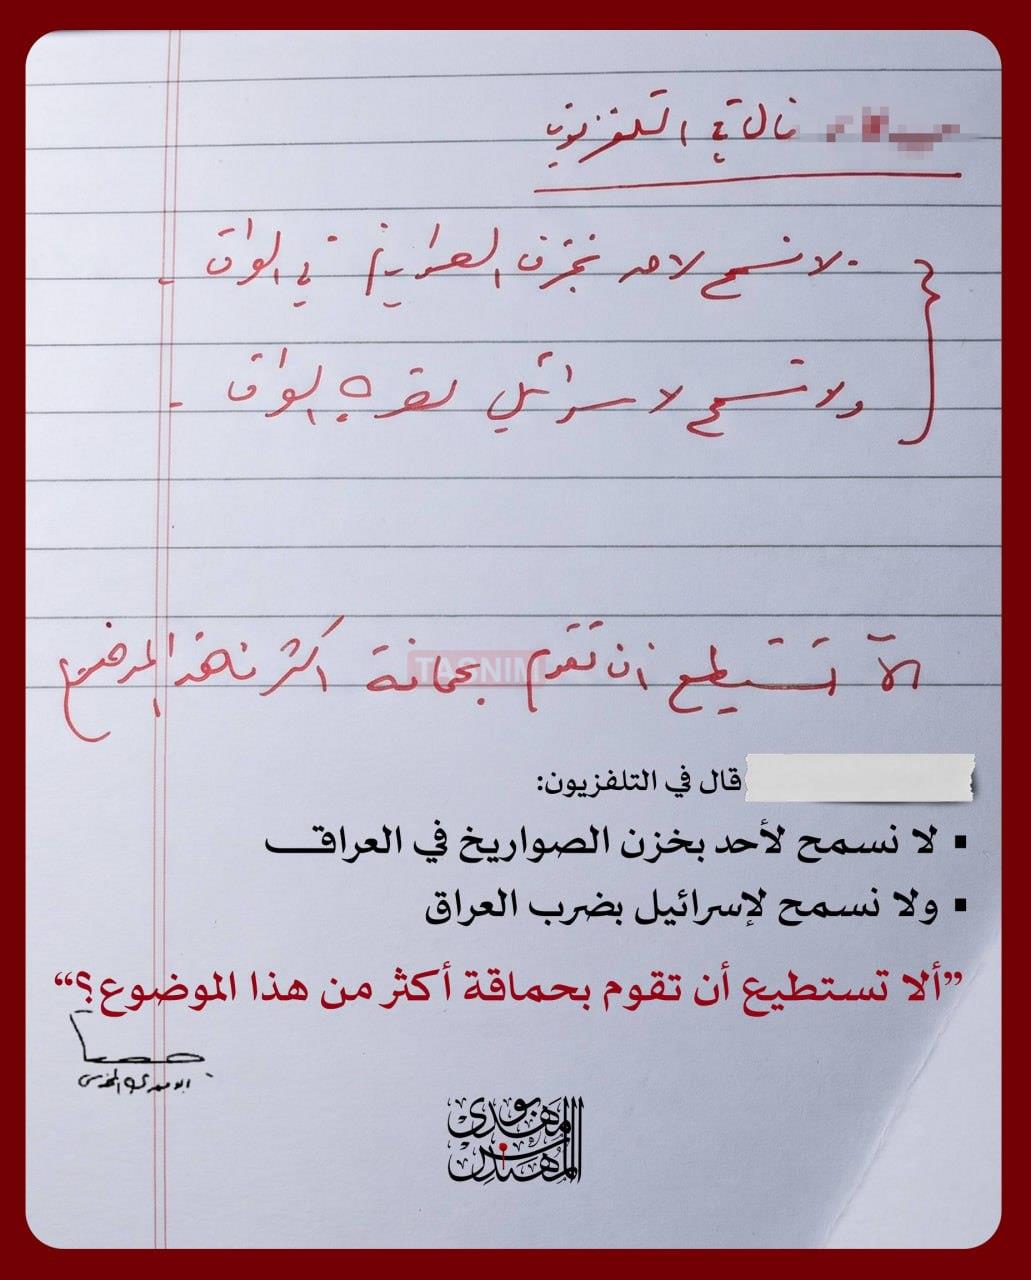 قال في التلفزيون
- لا نسمح لاحد بخزن الصواريخ في العراق .
ولا نسمح لاسرائيل بضرب العراق .
الا تستطيع ان تقوم بحماقة اكثر من هذا الموضوع
TASNIM
قال في التلفزيون:
▪ لا نسمح لأحد بخزن الصواريخ في العراق
▪ ولا نسمح لإسرائيل بضرب العراق
”ألا تستطيع أن تقوم بحماقة أكثر من هذا الموضوع؟“
ابو مهدي المهندس
أبو مهدي
المهندس